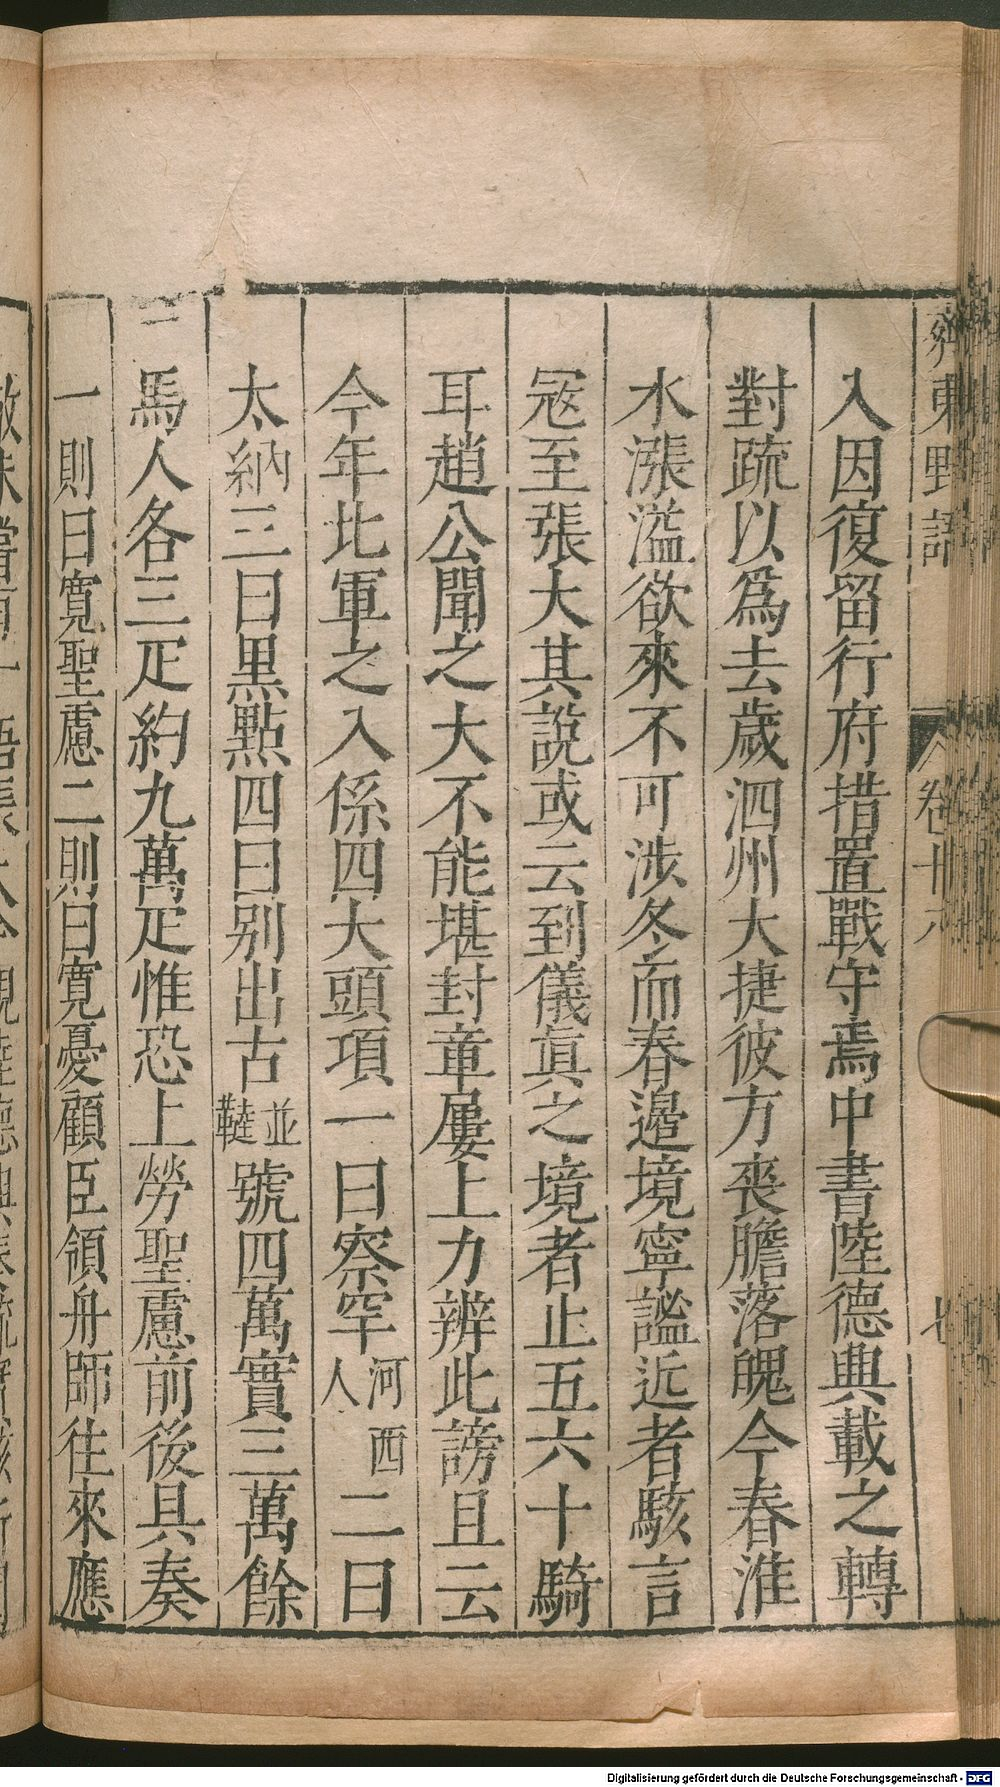 齊東野語
卷十八
七
入因復留行府措置戰守焉中書陸德輿載之轉
對疏以爲去歲泗州大捷彼方喪膽落魄今春淮
水漲溢欲來不可涉冬而春邉境寧謐近者駭言
冦至張大其說或云到儀眞之境者止五六十騎
耳趙公聞之大不能堪封章屢上力辨此謗且云
今年北軍之入係四大頭項一曰察罕河西人二曰
太納三曰黒點四曰别出古並韃號四萬實三萬餘
馬人各三疋約九萬疋惟恐上勞聖慮前後具奏
一則曰寛聖慮二則曰寛憂顧臣領舟師往來應
Digitalisierung gefördert durch die Deutsche Forschungsgemeinschaft - DFG